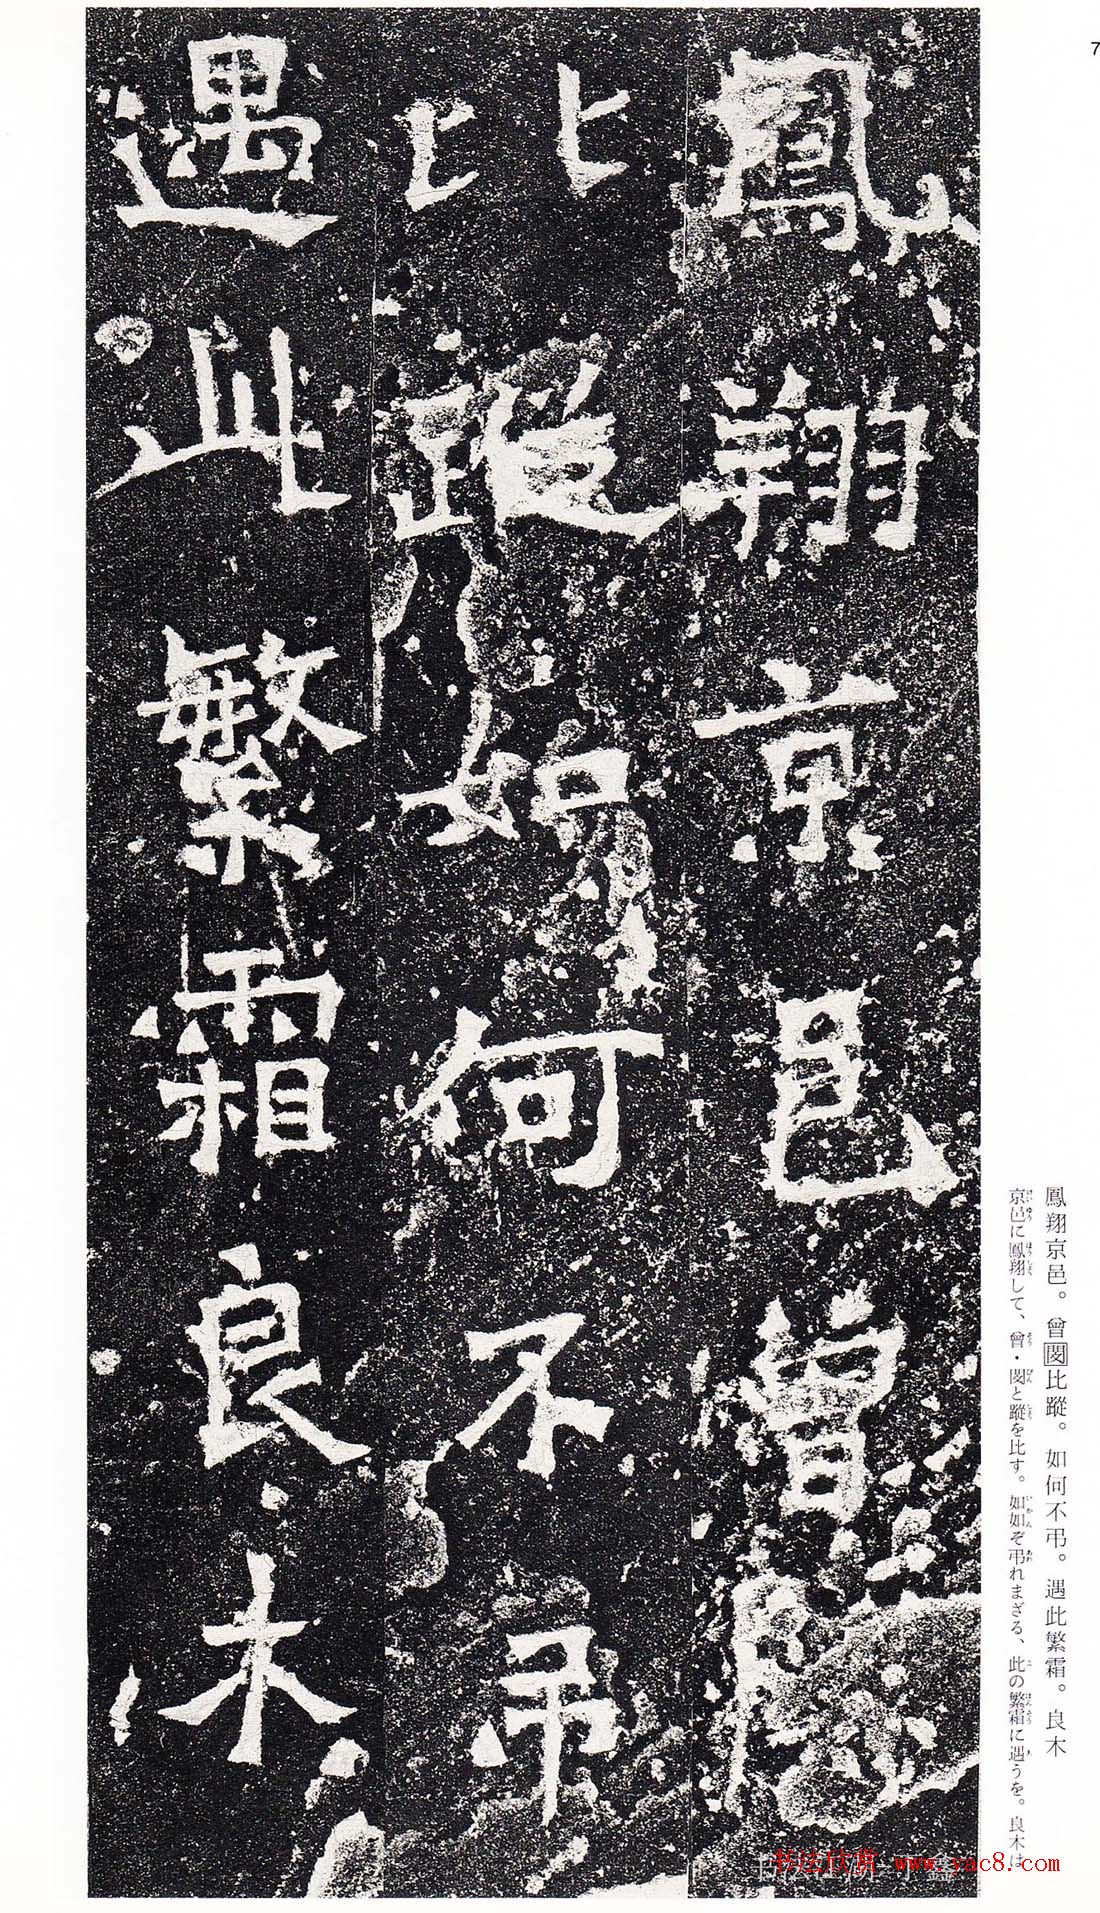 7
鳳翔京邑曾閔
比蹤如何不弔
遇此繁霜良木
鳳翔京邑。曾閔比蹤。如何不弔。遇此繁霜。良木
京邑に鳳翔して、曾・閔と蹤を比す。如如ぞ弔れまざる、此の繁霜に遇うを。良木は
书法欣赏 www.yac8.com